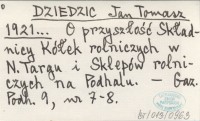 DZIEDZIC Jan Tomasz
1921... O przyszłość Skład-
nicy Kółek rolniczych w
N.Targu i Sklepów rolni-
czych na Podhalu. – Gaz.
Podh. 9, nr 7-8.
br/013/0963